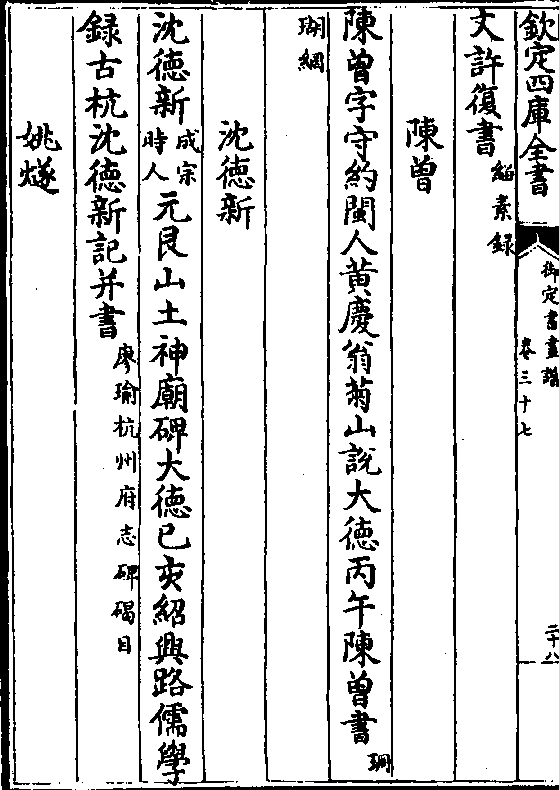 欽定四庫全書
御定書畫譜
卷三十七
二十八
文許復書 紹素錄
陳曾
陳曾字守約閩人黃慶翁菊山說大德丙午陳曾書 珊
瑚網
沈德新
沈德新 成宗時人 元艮山土神廟碑大德已亥紹興路儒學
録古杭沈德新記并書 廖瑜杭州府志碑碣目
姚燧